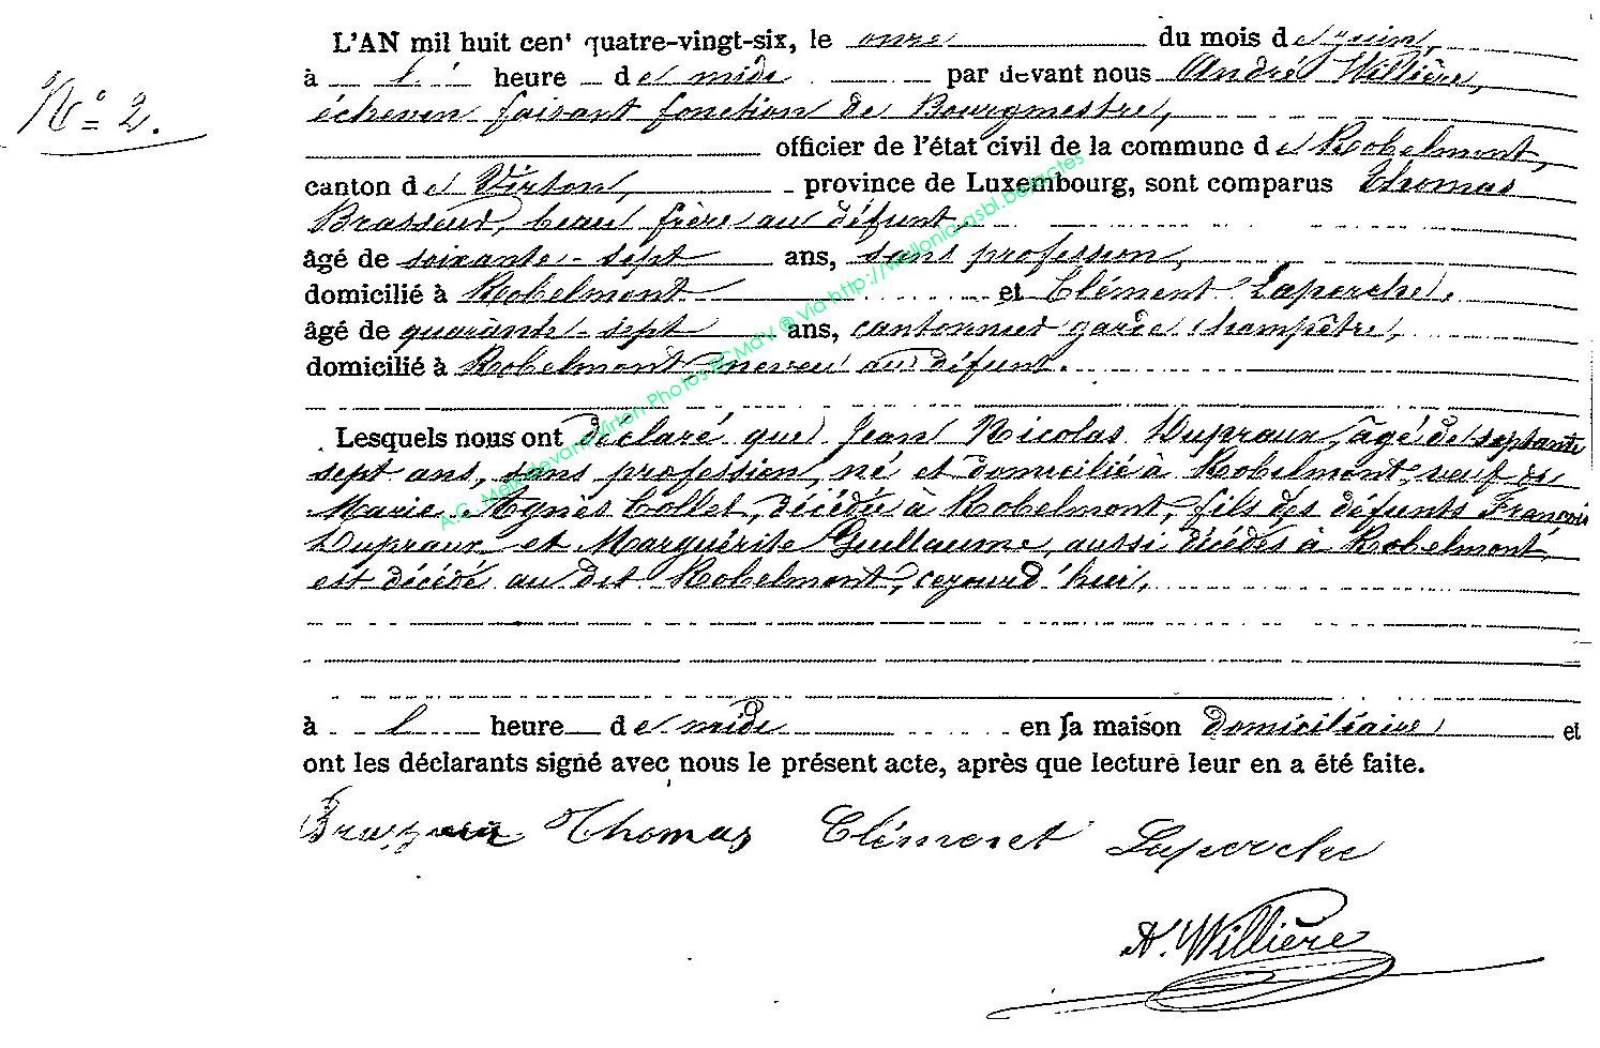 L'AN mil huit cent quatre-vingt-six, le onze du mois de juin,
à l heure de midi par devant nous André Willière,
N° 2.
échevin faisant fonction de Bourgmestre,
officier de l'état civil de la commune de Robelmont,
canton de Virton, province de Luxembourg, sont comparus Thomas
Brasseur, beau frère au défunt,
âgé de soixante-sept ans, sans profession,
domicilié à Robelmont et Clément Laperche,
âgé de quarante-sept ans, cantonnier garde champêtre,
domicilié à Robelmont neveu au défunt.
Lesquels nous ont déclaré que Jean Nicolas Dupraux, âgé de septante
sept ans, sans profession, né et domicilié à Robelmont, veuf de
Marie Agnès Collet, décédée à Robelmont, fils des défunts François
Dupraux et Marguérite Guillaume, aussi décédés à Robelmont,
est décédé au dit Robelmont, cejourd'hui,
à l heure de midi en sa maison domiciliaire et
ont les déclarants signé avec nous le présent acte, après que lecture leur en a été faite.
Thomas Clément Laperche
A. Willière
A.C. Meix devant Virton Photos @ Via http://wallonia-asbl.be/actes